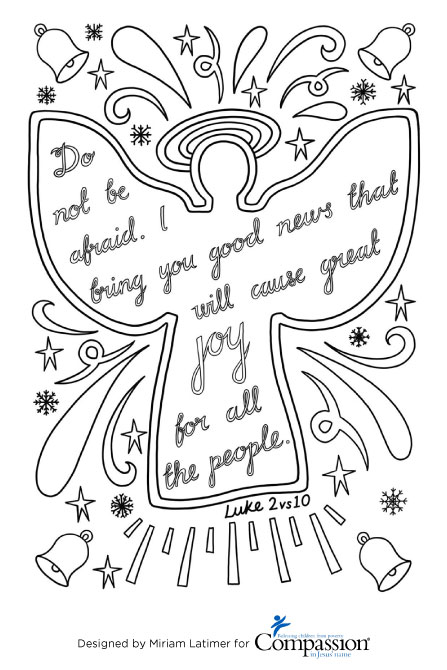 Do
not be
afraid. I
bring you good news that
will cause great
joy
for all
the people.
Luke 2vs10
Designed by Miriam Latimer for
Releasing children from poverty
Compassion®
in Jesus' name